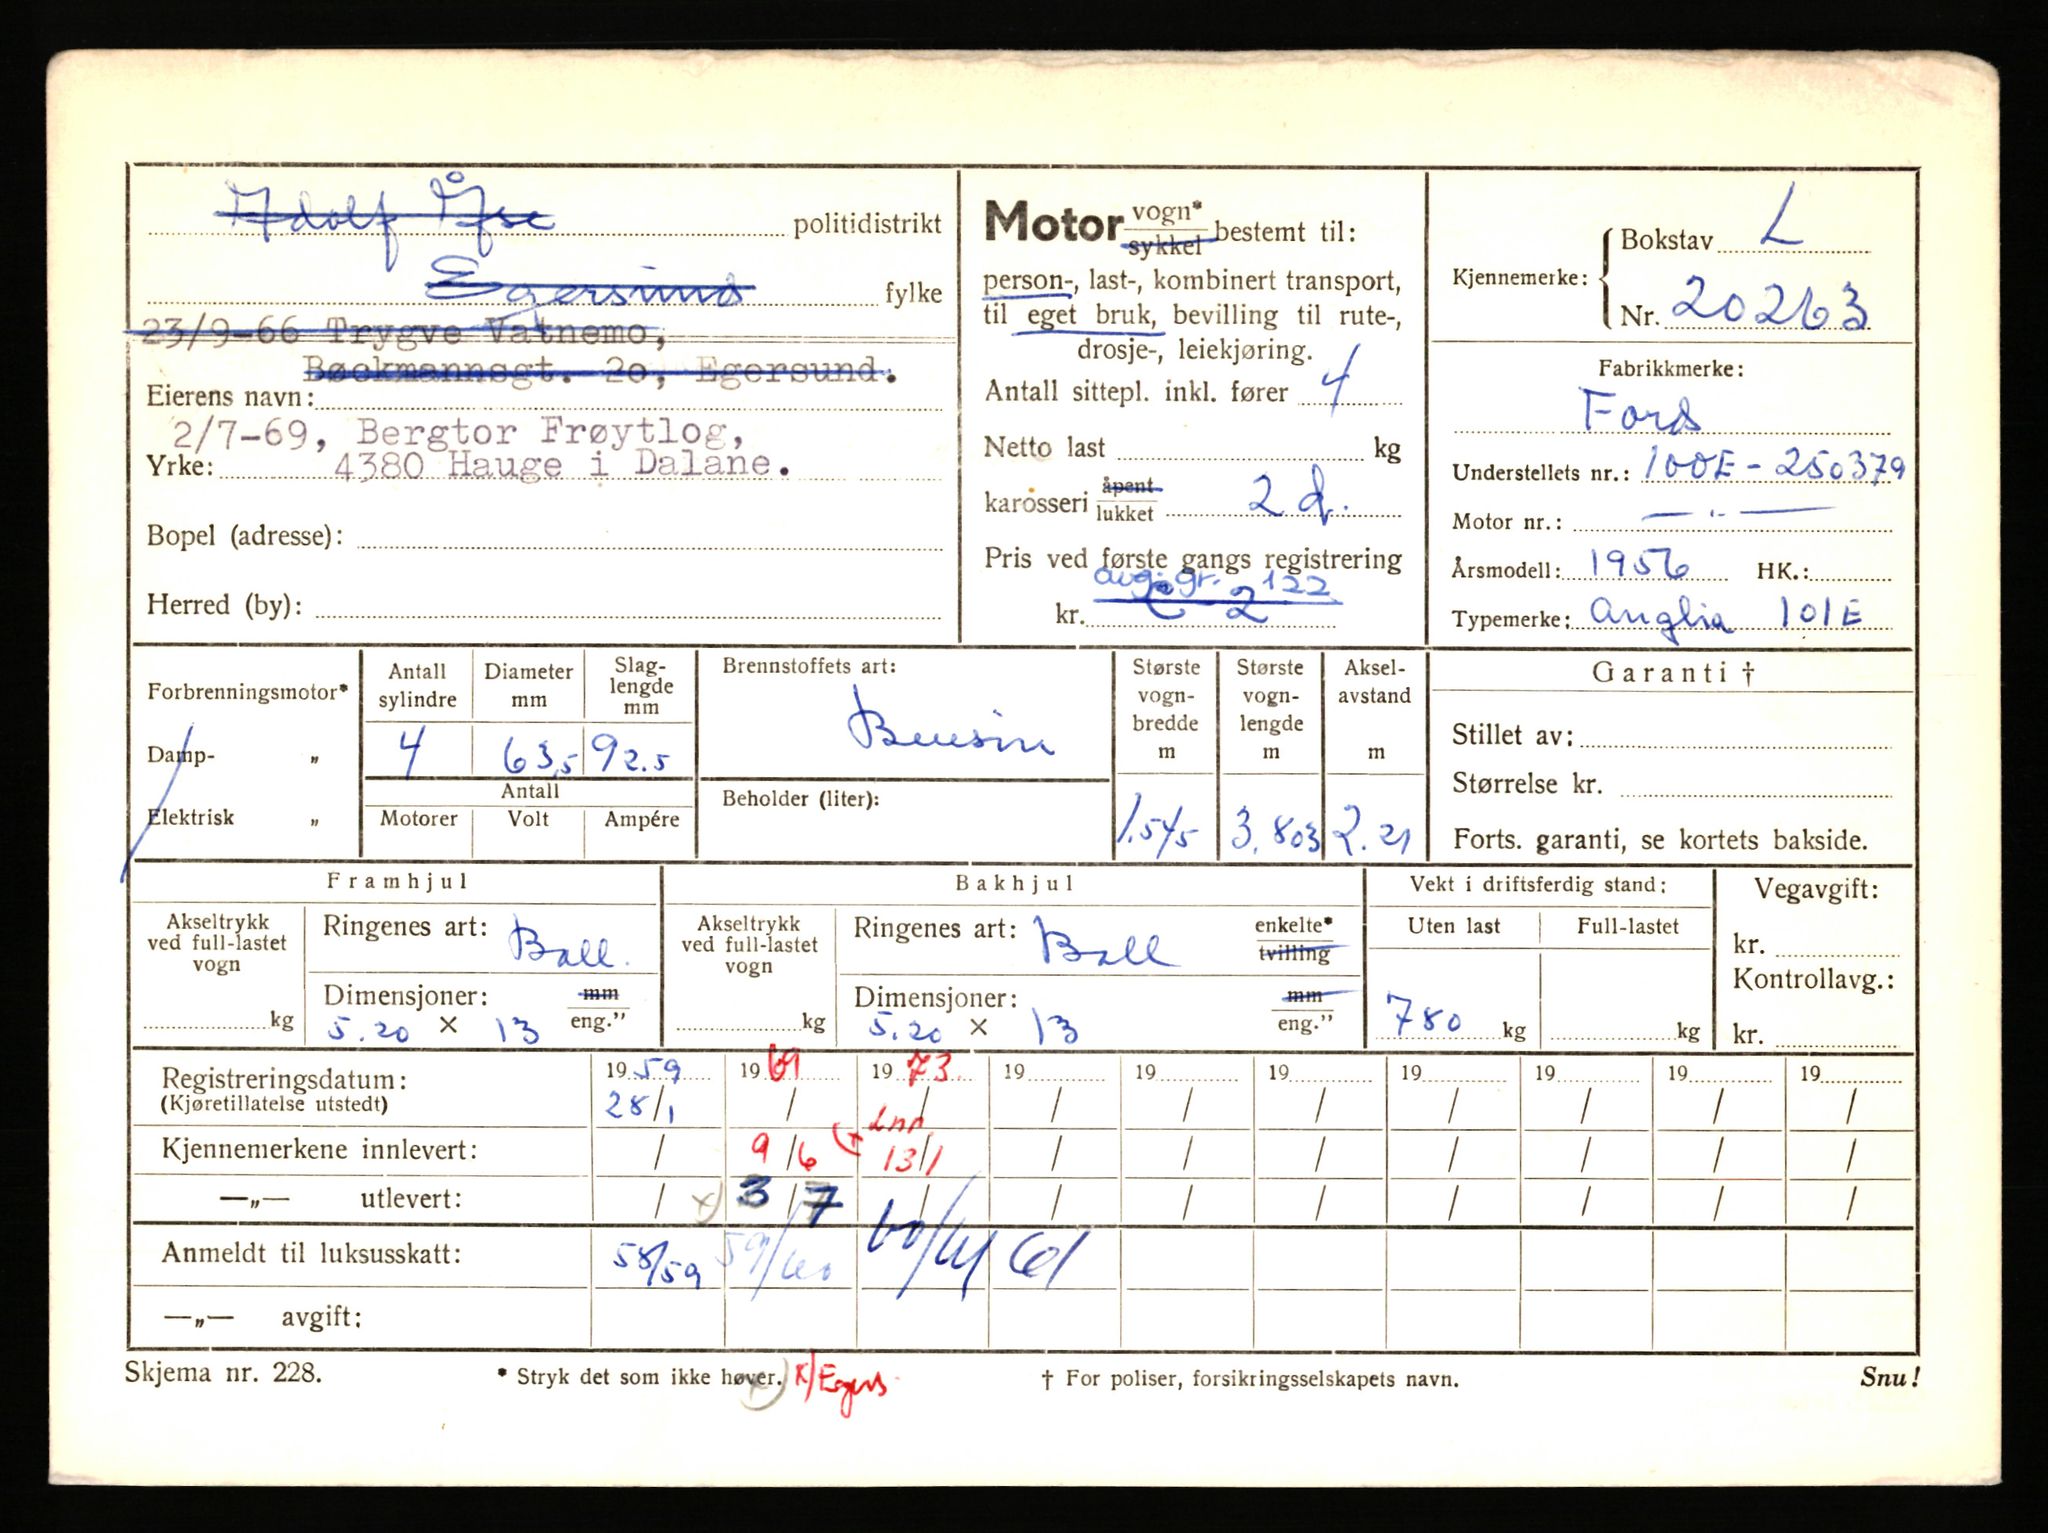 Adolf Åse politidistrikt
Egersund fylke
23/9-66 Trygve Vatnemo,
Bøckmannsgt. 20, Egersund.
Eierens navn:
2/7-69, Bergtor Frøytlog,
Yrke: 4380 Hauge i Dalane.
Bopel (adresse):
Herred (by):
Motor vogn* sykkel bestemt til:
person-, last-, kombinert transport,
til eget bruk, bevilling til rute-,
drosje-, leiekjøring.
Antall sittepl. inkl. fører 4
Netto last kg
karosseri åpent lukket 2 d.
Pris ved første gangs registrering
avg. gr. 122
kr. 2
Kjennemerke: Bokstav L
Nr. 20263
Fabrikkmerke:
Ford
Understellets nr.: 100E-250379
Motor nr.: — " —
Årsmodell: 1956 HK.:
Typemerke: Anglia 101E
Forbrenningsmotor*
Damp- „
Elektrisk „
Antall sylindre Diameter mm Slag-lengde mm
4 63,5 92.5
Antall
Motorer Volt Ampére
Brennstoffets art:
Bensin
Beholder (liter):
Største vogn-bredde m Største vogn-lengde m Aksel-avstand m
1.545 3.803 2.21
Garanti †
Stillet av:
Størrelse kr.
Forts. garanti, se kortets bakside.
Framhjul
Akseltrykk ved full-lastet vogn
kg
Ringenes art: Ball.
Dimensjoner: mm eng."
5.20 × 13
Bakhjul
Akseltrykk ved full-lastet vogn
kg
Ringenes art: Ball enkelte* tvilling
Dimensjoner: mm eng."
5.20 × 13
Vekt i driftsferdig stand:
Uten last Full-lastet
780 kg kg
Vegavgift:
kr.
Kontrollavg.:
kr.
Registreringsdatum: 1959 1969 1973 19 19 19 19 19 19 19
(Kjøretillatelse utstedt) 28/1 / / / / / / / / /
Kjennemerkene innlevert: / 9/6 (x Inn. 13/1 / / / / / / /
—„— utlevert: / x) 3/7 / / / / / / / /
Anmeldt til luksusskatt: 58/59 59/60 60/61 61
—„— avgift:
Skjema nr. 228.
* Stryk det som ikke høver. x) x/Egers.
† For poliser, forsikringsselskapets navn.
Snu!